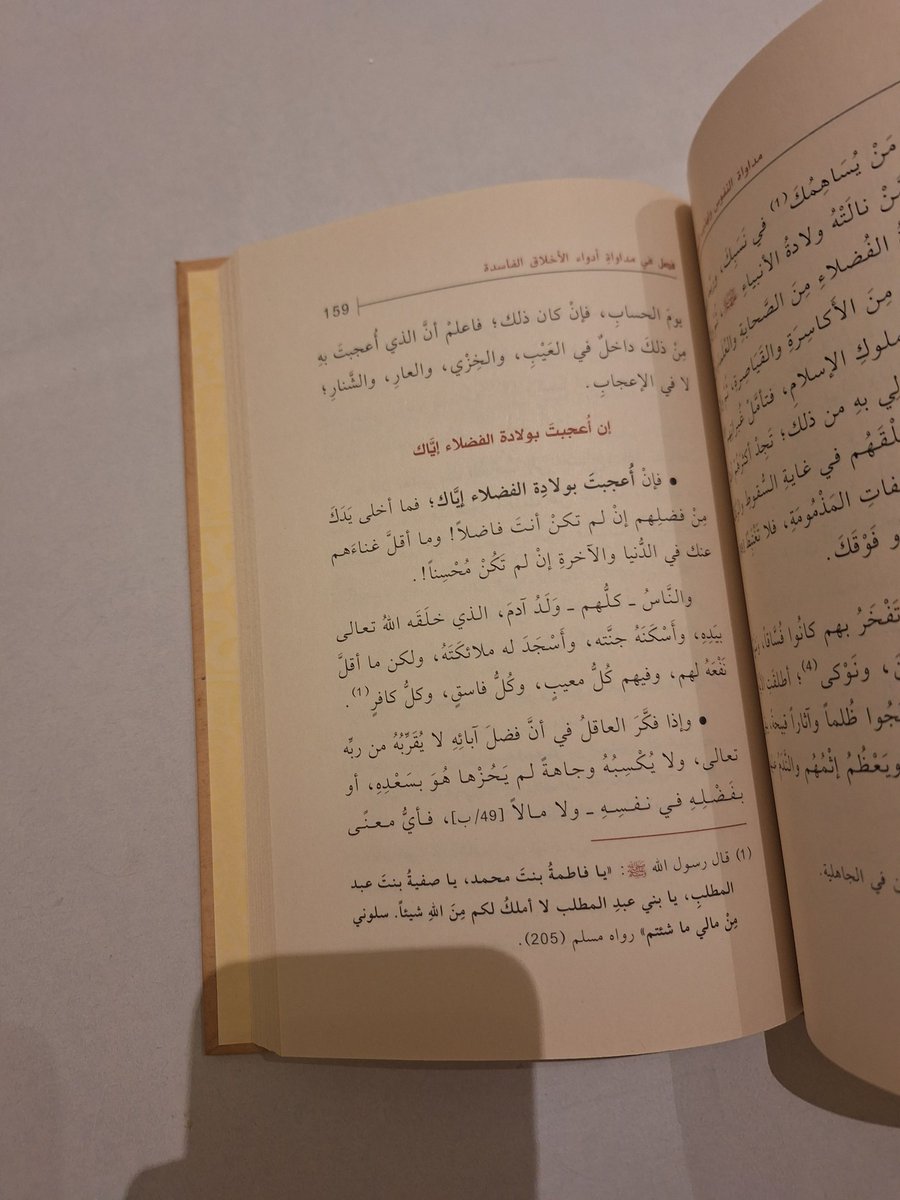 مداواة النفوس
مَنْ يُسَاهِمُكَ(1) في نَسَبِكَ،
نالَتْهُ ولادةُ الأنبياءِ ﷺ،
الفُضلاءِ مِنَ الصَّحابةِ
مِنَ الأكاسِرَةِ والقَياصِرَةِ،
ملوكِ الإسلامِ، فتأمَّلْ
بهِ من ذلك؛ تَجِدْ
في غايةِ السُّقوطِ
المَذْمُومَةِ، فلا
فَوْقَكَ.
تَفْخَرُ بهم كانُوا فُسَّاقاً،
ونَوْكى(4)؛ أطلقت
ظُلماً وآثاراً قبيحةً،
ويَعْظُمُ إثْمُهُم والنَّدَمُ
في الجاهلية.
فصل في مداواةِ أدواء الأخلاق الفاسدة
159
يومَ الحسابِ، فإنْ كان ذلك؛ فاعلمْ أنَّ الذي أُعجبتَ بهِ
مِنْ ذلكَ داخلٌ في العَيْبِ، والخِزْيِ، والعارِ، والشَّنارِ؛
لا في الإعجابِ.
إن أُعجبتَ بولادة الفضلاء إيَّاك
• فإنْ أُعجبتَ بولادِة الفضلاء إيَّاك؛ فما أخلى يَدَكَ
مِنْ فضلِهم إنْ لم تكنْ أنتَ فاضلاً! وما أقلَّ غناءَهم
عنك في الدُّنيا والآخرةِ إنْ لم تَكُنْ مُحْسِناً!.
والنَّاسُ ـ كلُّهم ـ وَلَدُ آدمَ، الذي خلَقَه اللهُ تعالى
بيَدِهِ، وأَسْكَنَهُ جنَّته، وأَسْجَدَ له ملائكتَهُ، ولكن ما أقلَّ
نَفْعَهُ لهم، وفيهم كُلُّ معيبٍ، وكُلُّ فاسقٍ، وكلُّ كافرٍ(1).
• وإذا فكَّرَ العاقلُ في أنَّ فضلَ آبائهِ لا يُقَرِّبُهُ من ربِّه
تعالى، ولا يُكْسِبُهُ وجاهةً لم يَحُزْها هُوَ بسَعْدِهِ، أو
بفَضْلِهِ في نفسِهِ ـ ولا مالاً [49/ب]، فأيُّ معنًى
(1) قال رسول الله ﷺ: «يا فاطمةُ بنتَ محمد، يا صفيةُ بنتَ عبد
المطلبِ، يا بني عبدِ المطلب لا أملكُ لكم مِنَ اللهِ شيئاً. سلوني
مِنْ مالي ما شئتم» رواه مسلم (205).